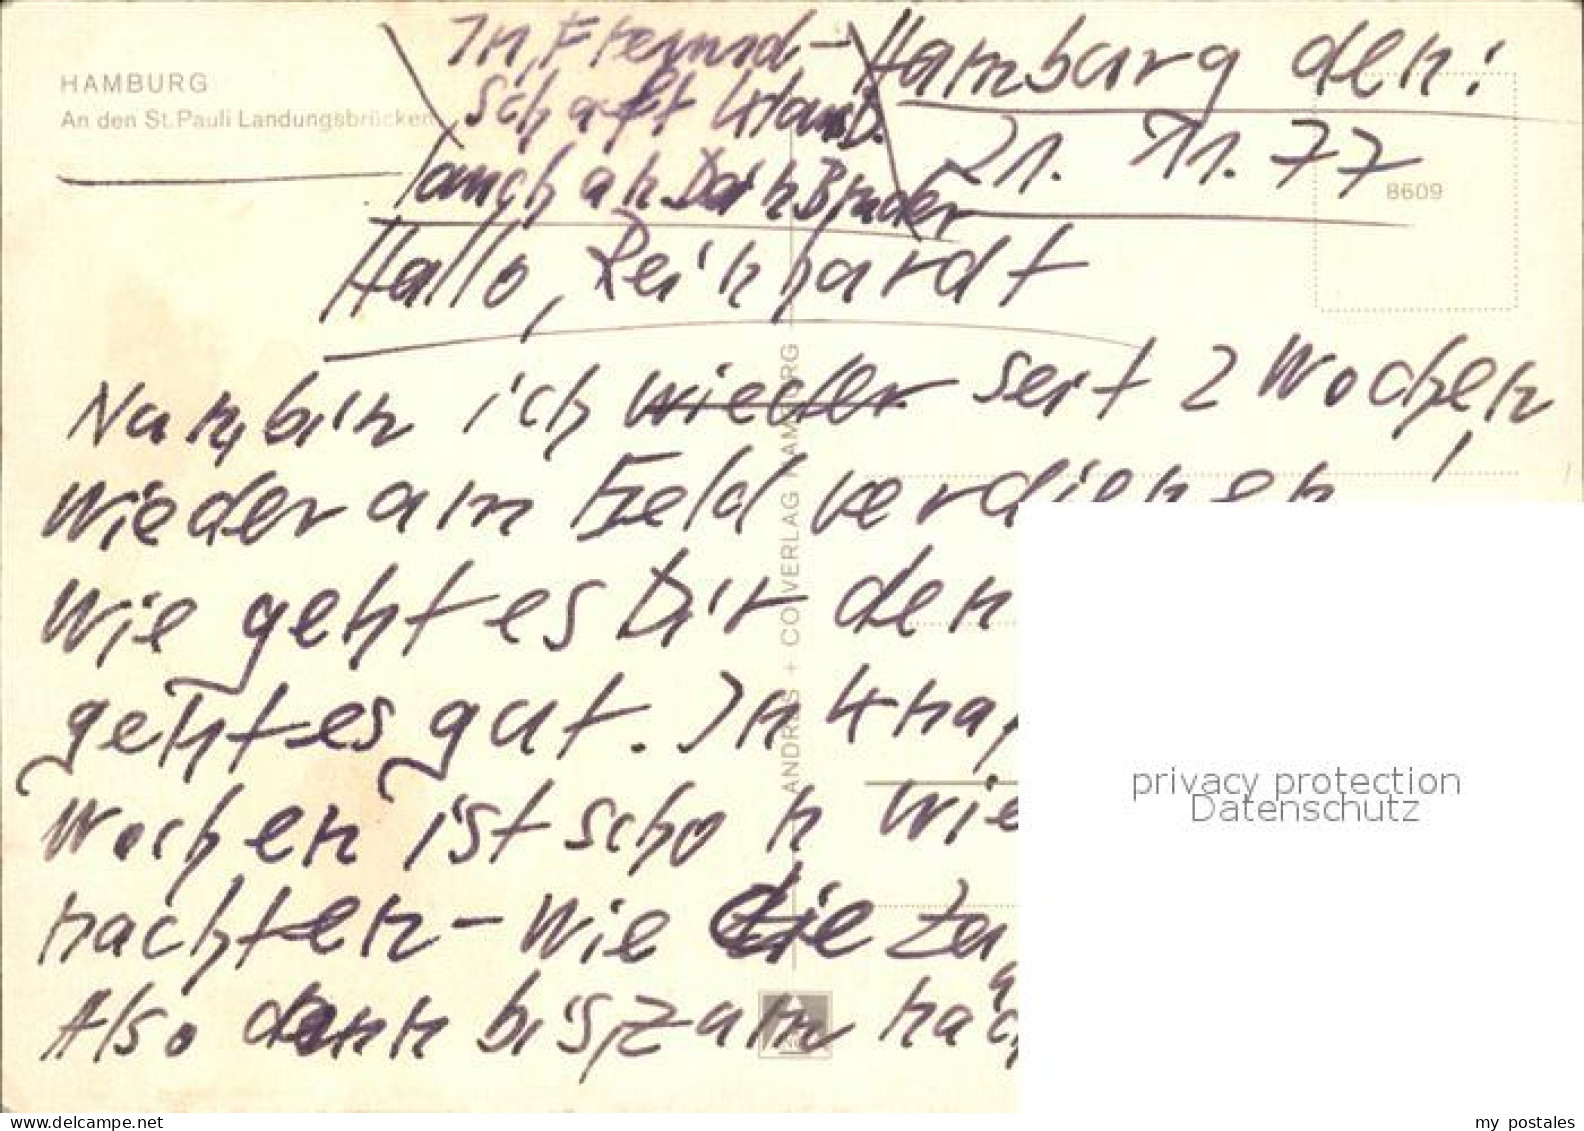 HAMBURG
An den St. Pauli Landungsbrücken
In Freund-
schaft Klaus D.
auch an Dein Bruder
Hamburg den:
21. 11. 77
8609
Hallo, Reinhardt
Nun, bin ich wieder seit 2 Wochen
wieder am Geld verdienen!
Wie geht es Dir den
geht es gut. In kna
Wochen ist schon Wie
nachten - wie die Ze
Also dann bis zum näc
ANDRES + CO VERLAG HAMBURG
privacy protection
Datenschutz
my-postcards.net
my postales